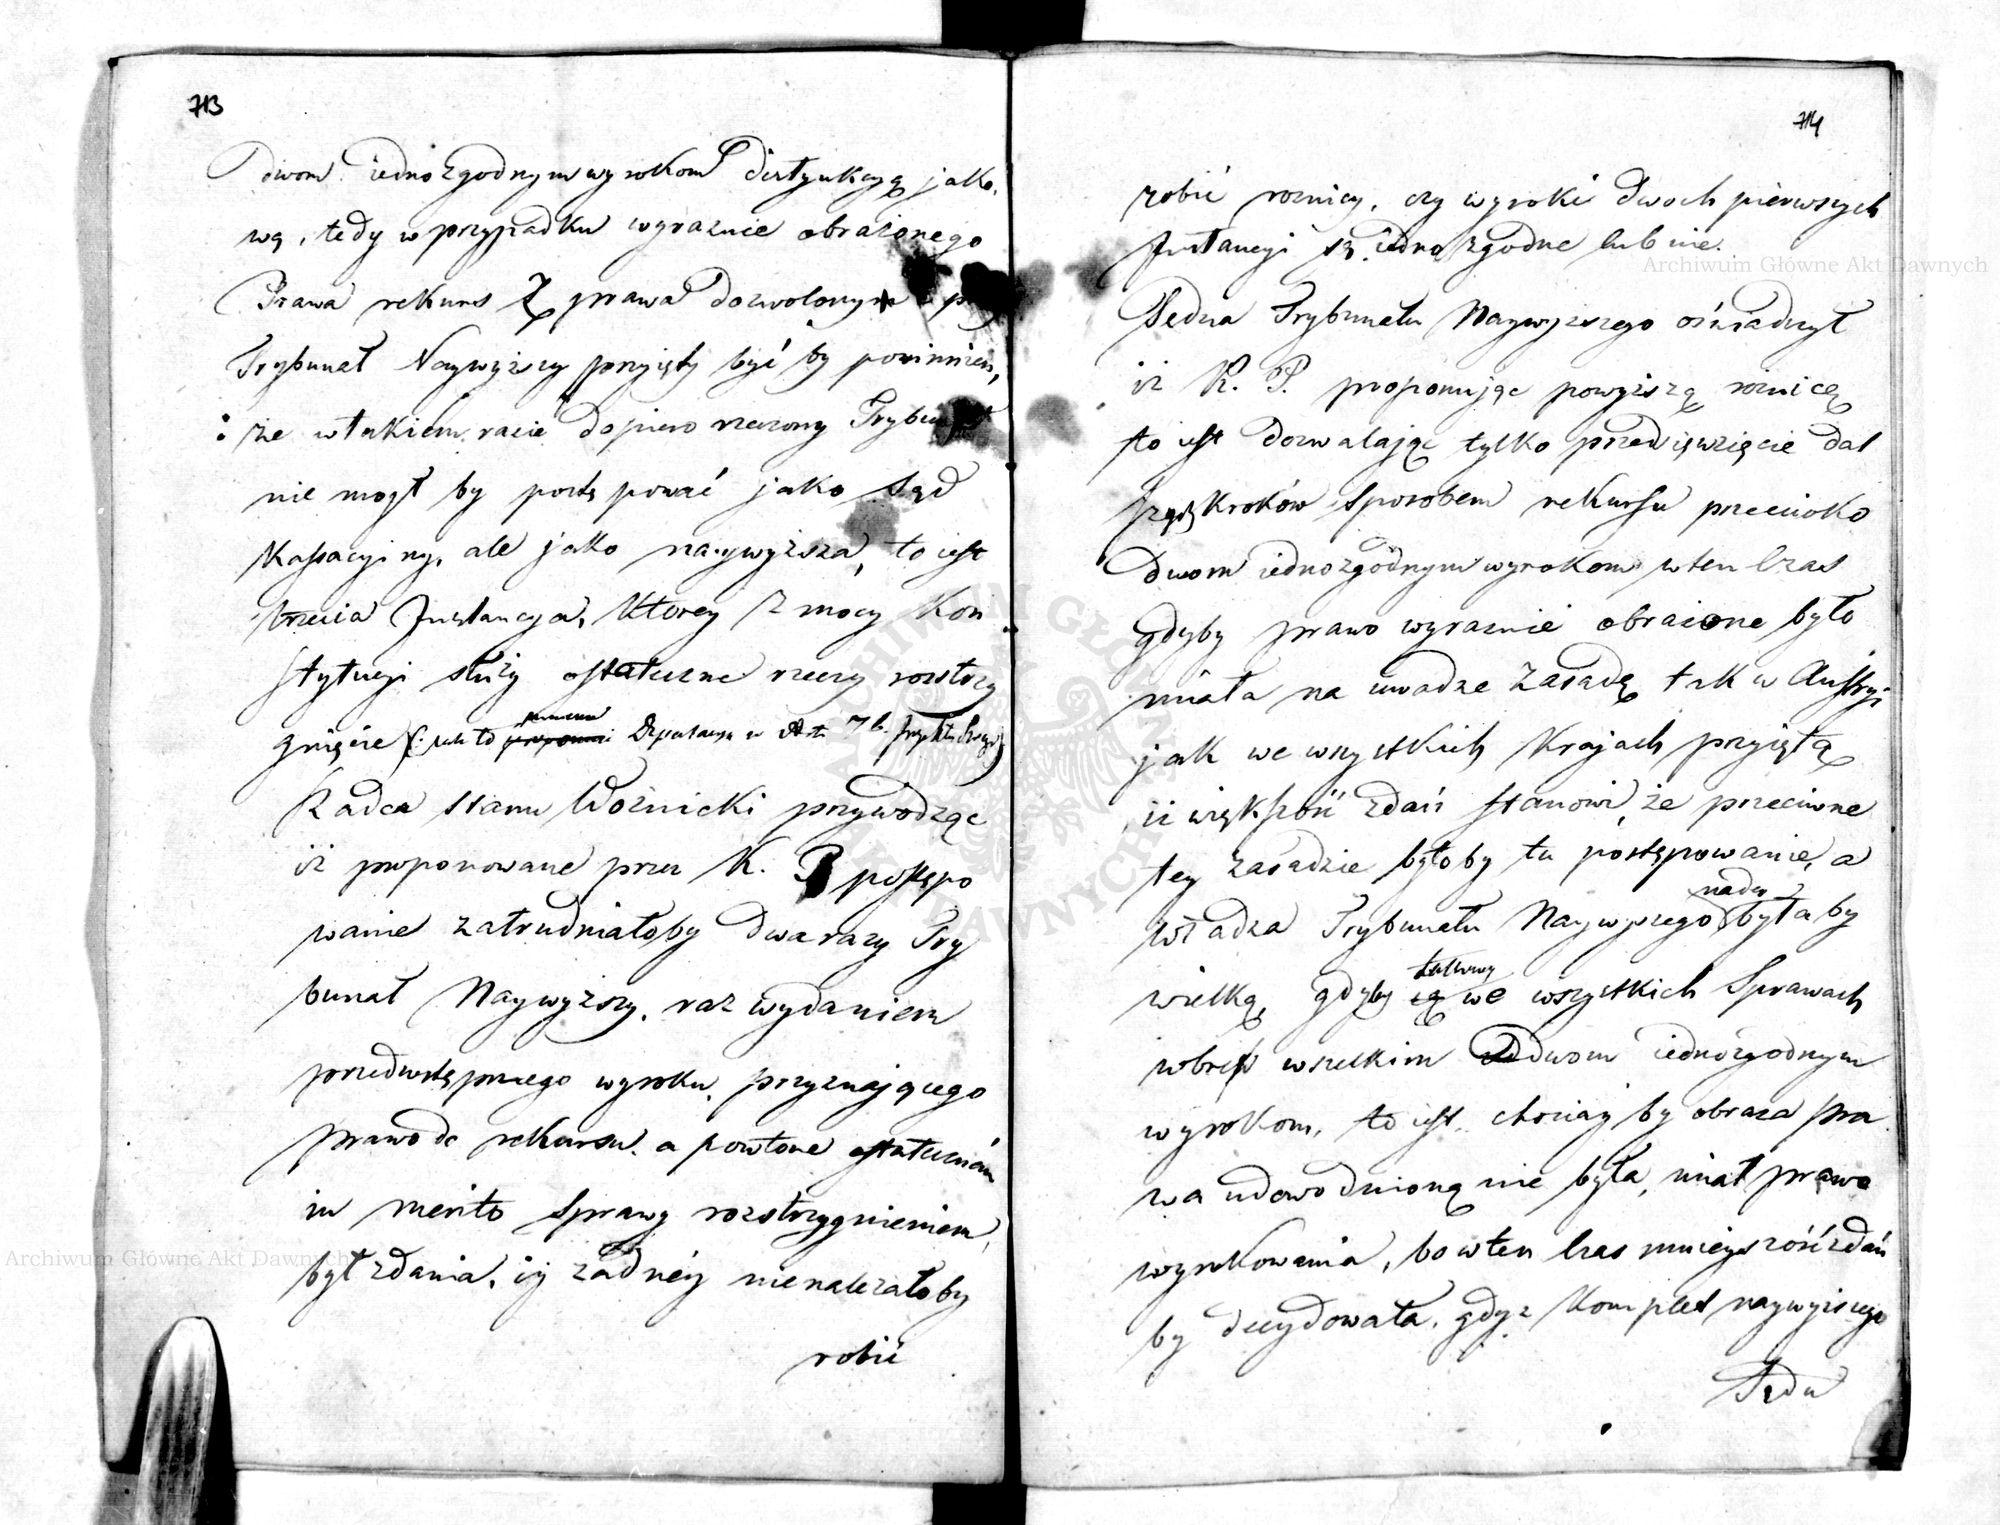 713
dwom iednozgodnym wyrokom distynkcyą jako.
wą, tedy w przypadku wyraznie obrażonego
Prawa rekurs prawa dozwolony
Trybunał Naywyższy przyięty być by powinnien,
że w takiem razie dopiero rzeczony Trybunał
nie mogł by postępować jako Sąd
Kassacyiny, ale jako naywyższa, to iest
trzecia Instancya, ktorey z mocy Kon
stytucyi służy ostateczne rzeczy rozstrzy
gnięcie (: jak to Deputacya w Art. 76.
Radca Stanu Woźnicki przywodząc
iż proponowane przez K. P. postępo
wanie zatrudniałoby dwa razy Try
bunał Naywyższy, raz wydaniem
przedwstępnego wyroku, przyznaiącego
prawo do rekursu, a powtore ostatecznem
in merito Sprawy rozstrzygnieniem,
był zdania, iż żadnéy nienależałoby
robić
714
robić roznicy, czy wyroki dwoch pierwszych
Instancyi są iednozgodne lub nie.
Sędzia Trybunału Naywyższego oświadczył
iż K. P. proponując powyższą roznicę
to iest dozwalając tylko przedsięwzięcie dal
szych kroków sposobem rekursu przeciwko
dwom iednozgodnym wyrokom wten czas
gdyby prawo wyraznie obrażone było
miała na uwadze zasadę tak w Austryi
jak we wszystkich Krajach przyiętą
iż większość zdań stanowi, że przeciwne
tey zasadzie byłoby tu postępowanie, a
nadto
władza Trybunału Naywyższego byłaby
takowy
wielką, gdyby we wszystkich Sprawach
wbrew wszelkim dwom iednozgodnym
wyrokom, to iest. chociaż by obraza pra
wa udowodnioną nie była, miał prawo
wyrokowania, bo wten czas mnieyszość zdań
by decydowała, gdyż Komplet naywyższego
Sądu
Archiwum Główne Akt Dawnych
Archiwum Główne Akt Dawnych